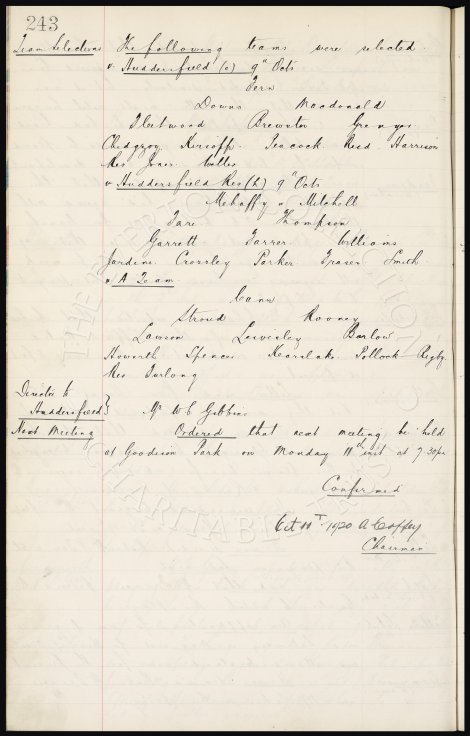 243
Team Selections The following teams were selected.
v. Huddersfield (a) 9th Octs
Fern
Downs Macdonald
Fleetwood Brewster Grenyer
Chedgzoy Kirsopp. Peacock Reid Harrison
Res Jones Wolles
v Huddersfield Res (h) 9th Octs
Mehaffy v Mitchell
Tari Thompson
Garrett Farrer Williams
Jardine Crossley Parker Fraser Smith.
v A Team.
Cann
Stroud Rooney
Lawson Leivesley Barlow
Howarth Spencer Kearslake Pollock Rigby
Res Furlong
Director to
Huddersfield} Mr W C Gibbins
Next Meeting Ordered that next meeting be held
at Goodison Park on Monday 11th inst at 7.30pm
Confirmed
Oct 11th 1920 A Coffey
Chairman
THE EVERTON COLLECTION
CHARITABLE